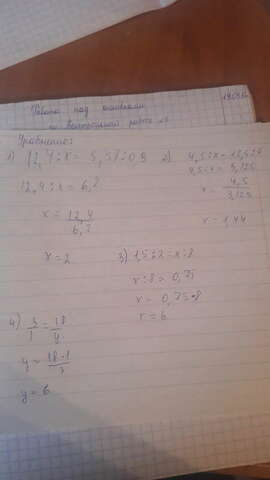 Работа над ошибками
по контрольной работе
Уравнение:
1) 12,4:x = 5,5
12,4:x = 6,2
x = 12,4
6,2
x = 2
2) 4,5:x=
4,5:x = 3,125
x = 4,5
3,125
x = 1,44
3) 1,5:2=x:8
x:8 = 0,75
x = 0,75·8
x = 6
4) 3/1 = 18/y
y = 18·1
3
y = 6